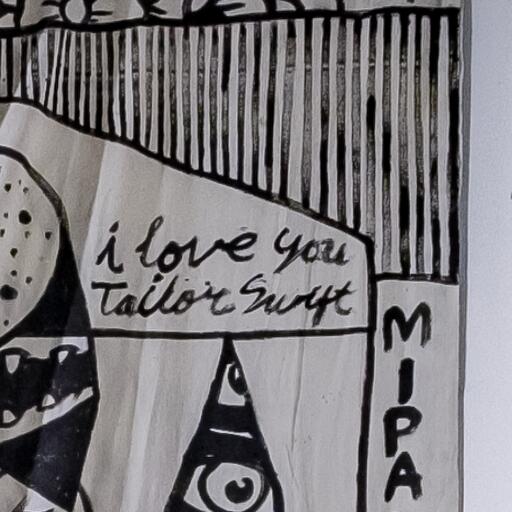 i love you
Tailor Swift
MIPA